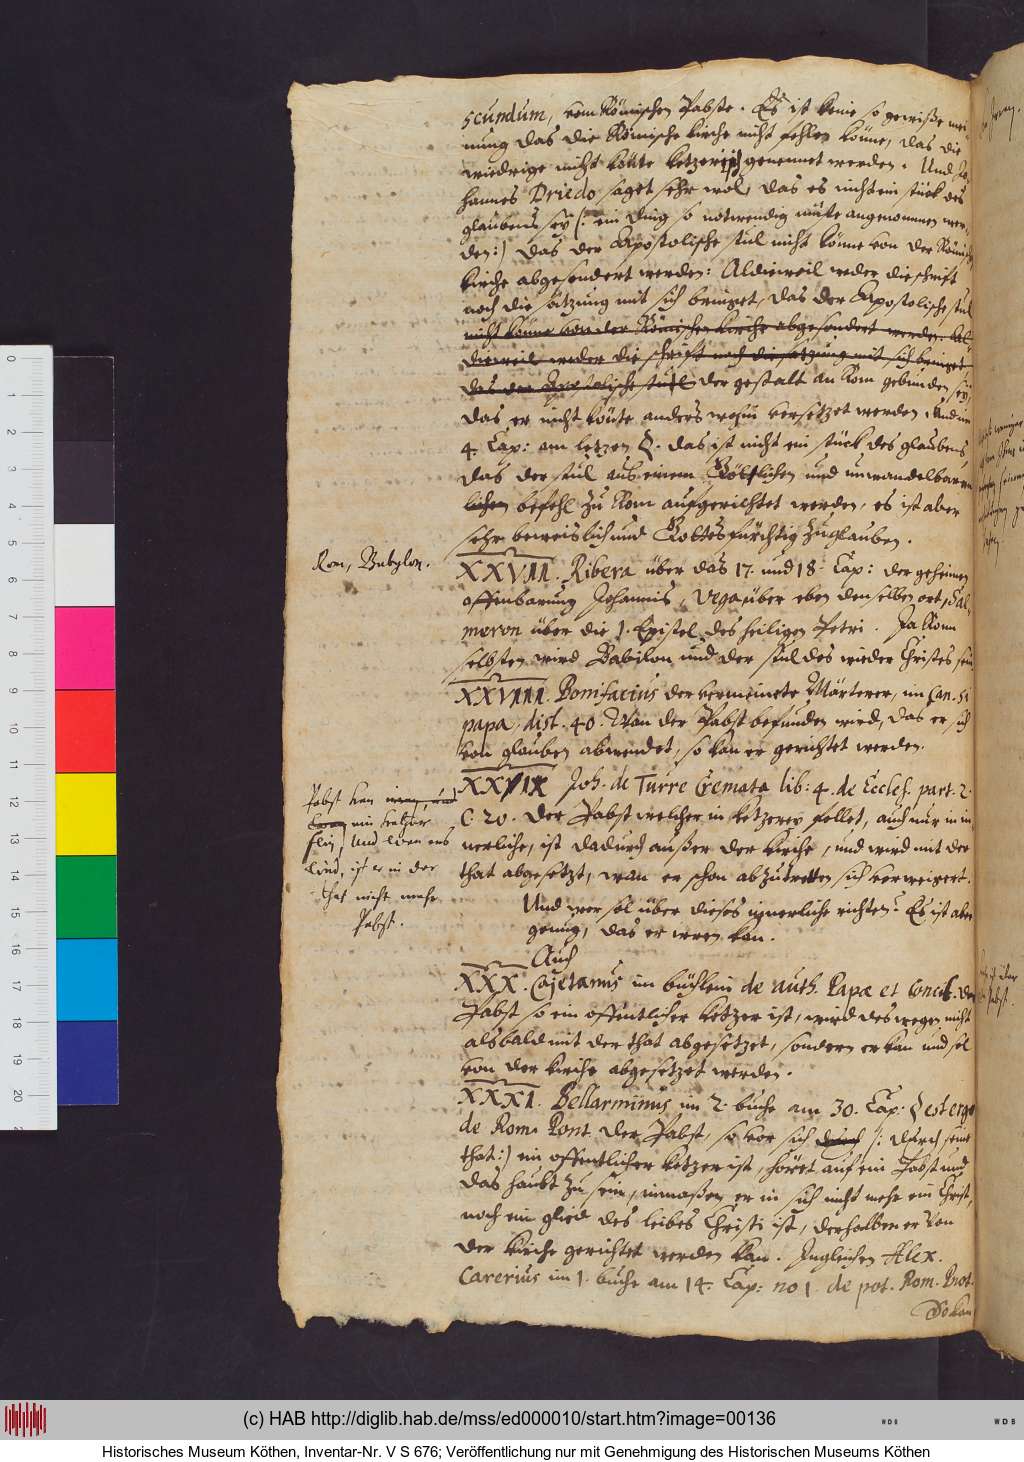 scundum, vom Römischen Pabste. Es ist keine so gewiße mei-
nung das die Römische kirche nicht fehlen könne, das die
wiedrige nicht könte ketzerisch genennet werden. Und Jo-
hannes Driedo saget sehr wol, das es nicht ein stück des
glaubens sey (: ein ding so notwendig müste angenommen wer-
den:) das der Apostolische stul nicht könne von der Römisch
kirche abgesondert werden: Aldieweil weder die schrift
noch die satzung mit sich bringet, das der Apostolische stul
nicht könne von der Römischen kirche abgesondert werden. Al-
dieweil weder die schrift noch die satzung mit sich bringet,
das der Apostolische stuel der gestalt an Rom gebunden sey,
das er nicht könte anders wohin versetzet werden. Und im
4. Cap: am letzen §. das ist nicht ein stück des glaubens
das der stul aus einem Göttlichen und unwandelbaren
lichen befehl zu Rom aufgerichtet worden, es ist aber
sehr beweislich und Gottesfürchtig zuglauben.
Rom, Babylon.
XXVII. Ribera über das 17. und 18. Cap: der geheimen
offenbarung Johannis, Vega über eben denselben ort, Sal-
meron über die 1. Epistel des heiligen Petri. Ja Rom
selbsten wird Babilon und der stul des wieder Christes sein
XXVIII. Bonifacius der vermeinete Märterer, im Can. Si
papa, dist. 40. Wan der Pabst befunden wird, das er sich
von glauben abwendet, so kan er gerichtet werden.
Pabst kan irren, und
ein ketzer
sein, und wen ers
wird, ist er in der
that nicht mehr
Pabst.
XXVIX Joh. de Turre Cremata lib: 4. de Eccles. part. 2.
C. 20. Der Pabst welcher in ketzerey fellet, auch nur in in-
nerliche, ist dadurch außer der kirche, und wird mit der
that abgesetzt, wan er schon abzutretten sich verweigert.
Und wer sol über dieses innerliche richten? Es ist aber
genug, das er irren kan.
Auch
XXX. Cajetanus im büchlein de auth. Papæ et Concil. Der
Pabst so ein offentlicher ketzer ist, wird deswegen nicht
alsbald mit der that abgesetzet, sondern er kan und sol
von der kirche abgesetzet werden.
XXXI. Bellarminus im 2. buche am 30. Cap: § est ergo
de Rom. Pont. Der Pabst, so vor sich durch (: durch seine
that:) ein offentlicher ketzer ist, höret auf ein Pabst und
das haubt zu sein, inmaßen er in sich nicht mehr ein Christ,
noch ein glied des leibes Christi ist, derhalben er von
der kirche gerichtet werden kan. Ingleichen Alex.
Carerius im 1. buche am 14. Cap: no 1. de pot. Rom. Pont.
So kan
(c) HAB http://diglib.hab.de/mss/ed000010/start.htm?image=00136
Historisches Museum Köthen, Inventar-Nr. V S 676; Veröffentlichung nur mit Genehmigung des Historischen Museums Köthen